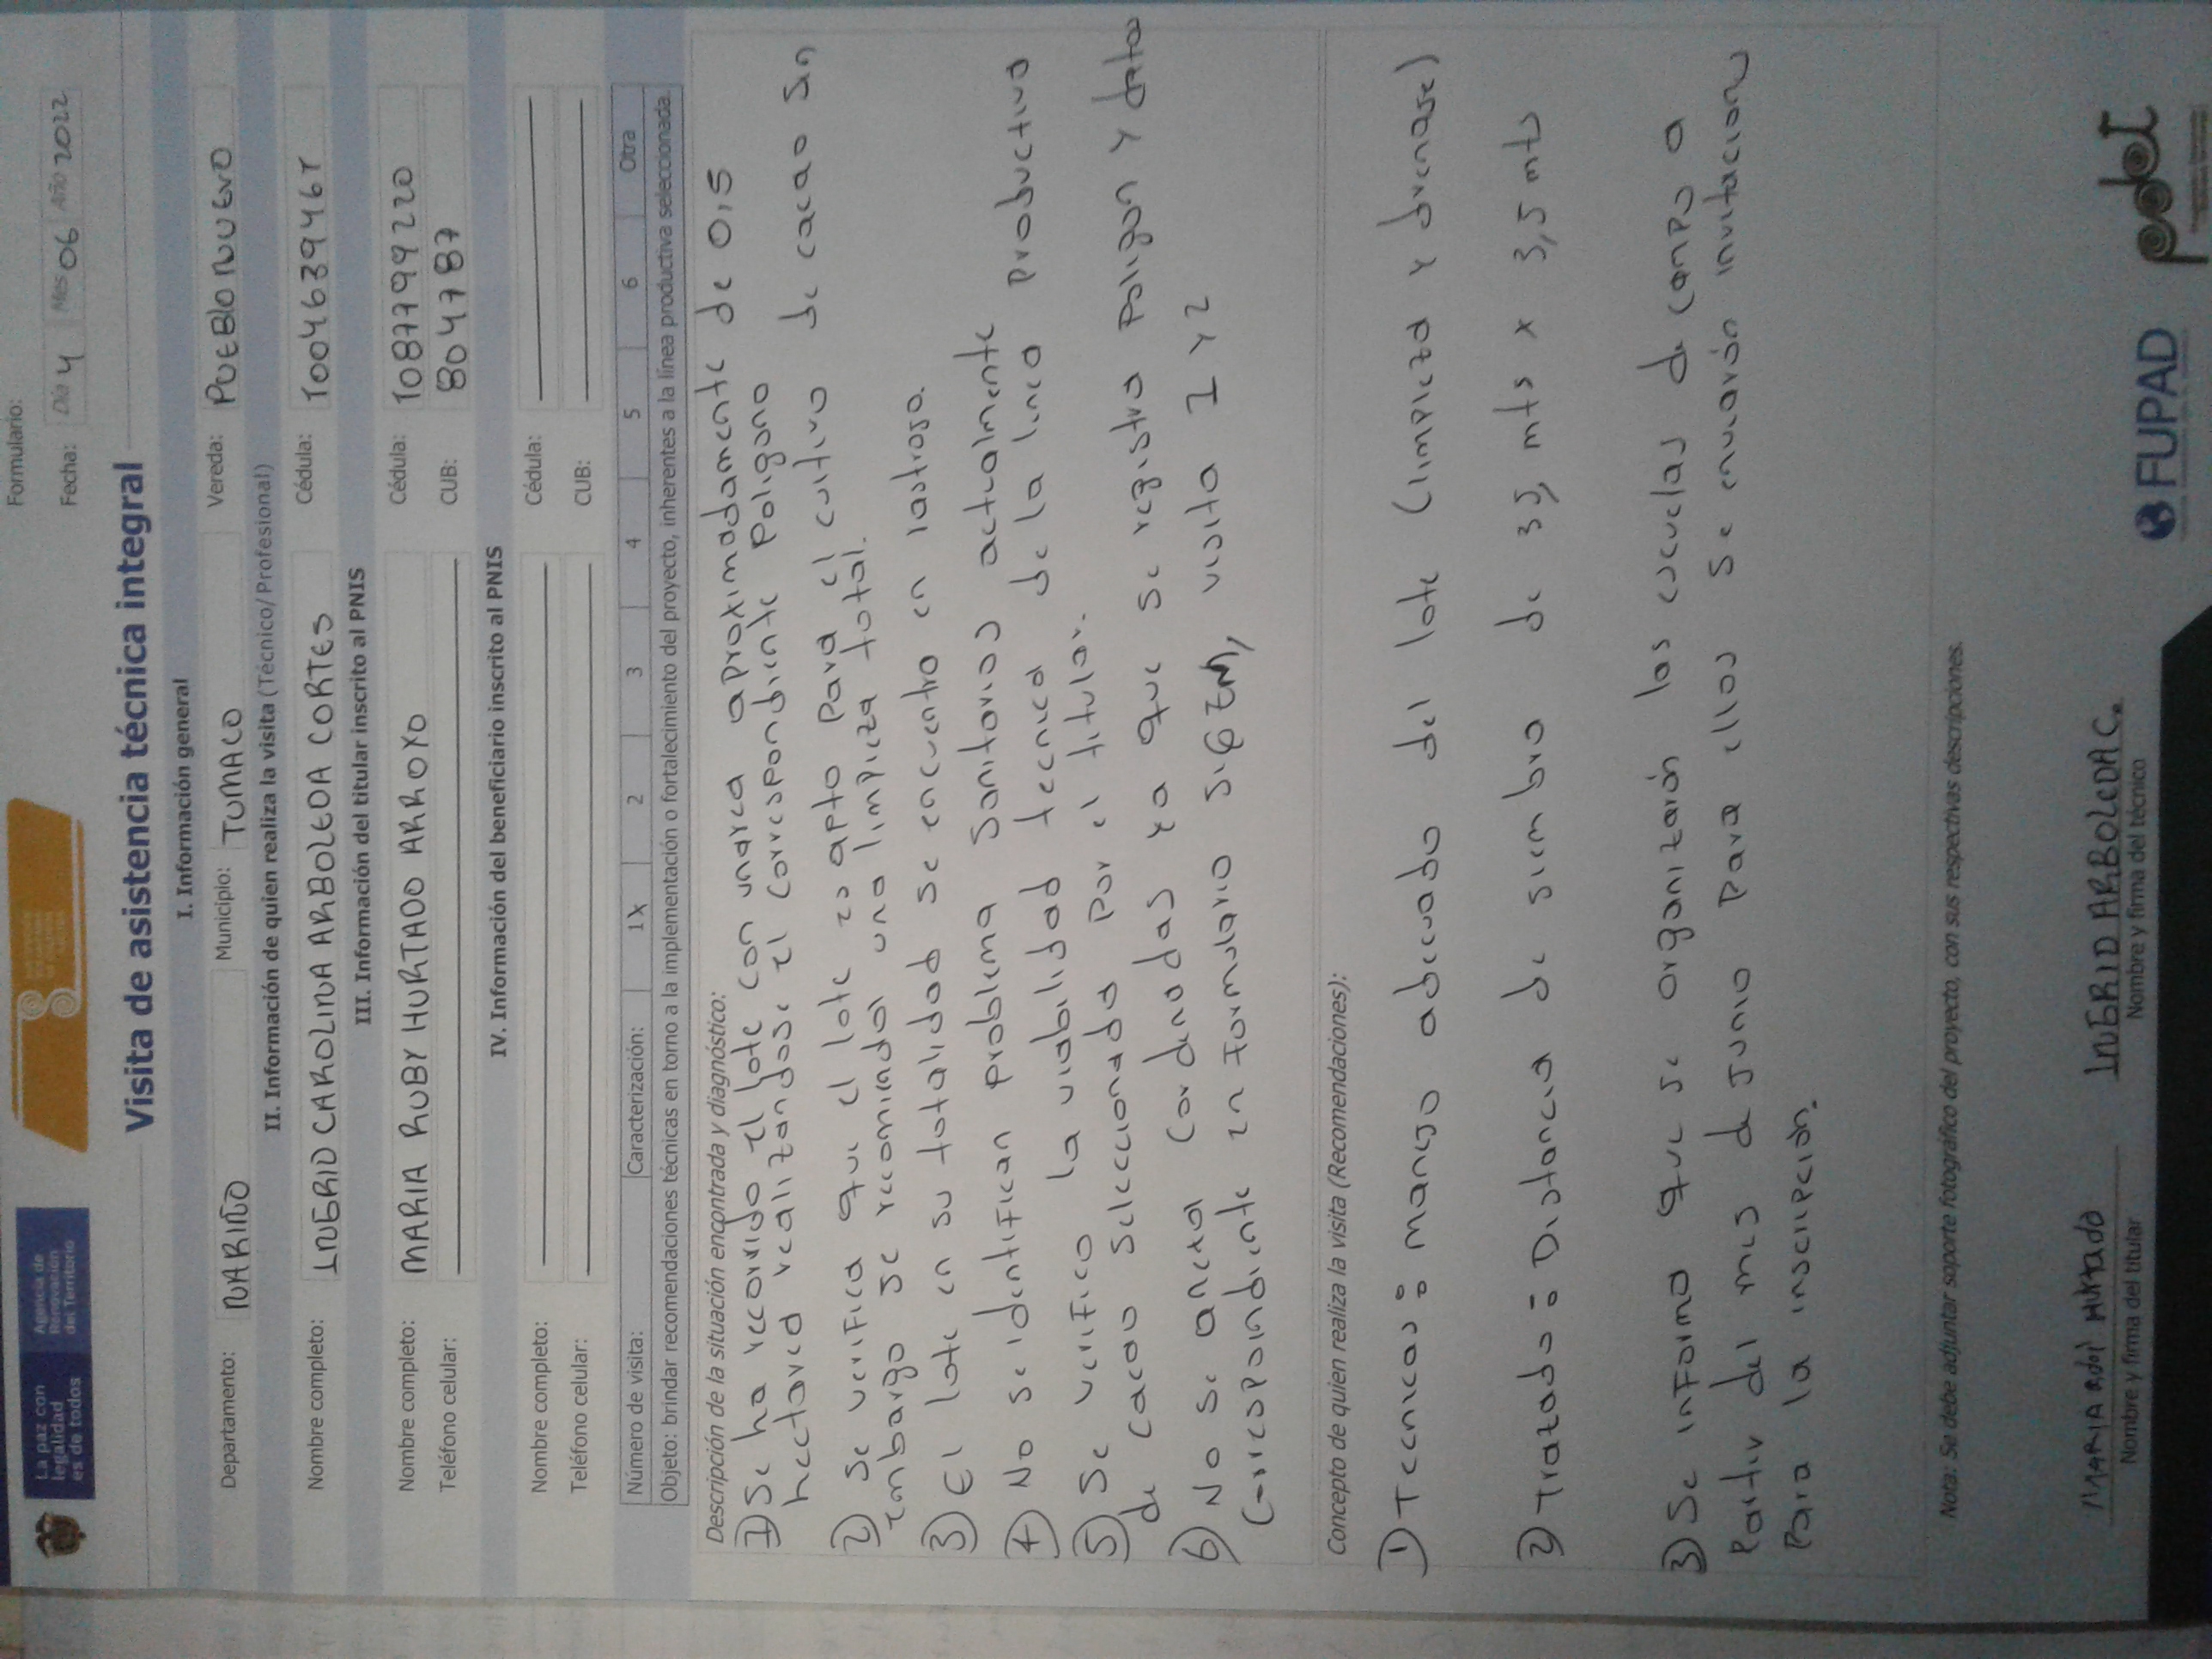 La paz con
legalidad
es de todos
Agencia de
Renovación
del Territorio
Formulario:
Fecha: Día 4 Mes 06 Año 2022
Visita de asistencia técnica integral
I. Información general
Departamento: NARIÑO Municipio: TUMACO Vereda: PUEBLO NUEVO
II. Información de quien realiza la visita (Técnico/Profesional)
Nombre completo: INGRID CAROLINA ARBOLEDA CORTES Cédula: 1004639461
III. Información del titular inscrito al PNIS
Nombre completo: MARIA RUBY HURTADO ARROYO Cédula: 1087799220
Teléfono celular: CUB: 804787
IV. Información del beneficiario inscrito al PNIS
Nombre completo: Cédula:
Teléfono celular: CUB:
Número de visita: Caracterización: 1X 2 3 4 5 6 Otra
Objeto: brindar recomendaciones técnicas en torno a la implementación o fortalecimiento del proyecto, inherentes a la línea productiva seleccionada.
Descripción de la situación encontrada y diagnóstico:
1) Se ha recorrido el lote con unarea aproximadamente de 0,5
hectarea realizandose el correspondiente poligono
2) Se verifica que el lote es apto para el cultivo de cacao sin
embargo se recomindal una limpieza total.
3) El lote en su totalidad se encuentra en rastrojo.
4) No se identifican problema sanitarios actualmente
5) Se verifico la viabilidad tecnica de la linea productiva
de cacao seleccionada por el titular.
6) No se anexa cordenadas ya que se registro poligon y datos
correspoindiente en formulario visita 1 y 2
Concepto de quien realiza la visita (Recomendaciones):
1) Tecnicas: manejo adecuado del lote (limpieza y drenase)
2) Tratado: Distancia de siembra de 3,5 mts x 3,5 mts
3) Se informa que se organizarón las escuelas de campo a
partir del mes de junio para ellos se enviarán invitacion
para la inscripción.
Nota: Se debe adjuntar soporte fotográfico del proyecto, con sus respectivas descripciones.
MARIA Hurtado
Nombre y firma del titular
INGRID ARBOLEDA C.
Nombre y firma del técnico
FUPAD
pdet